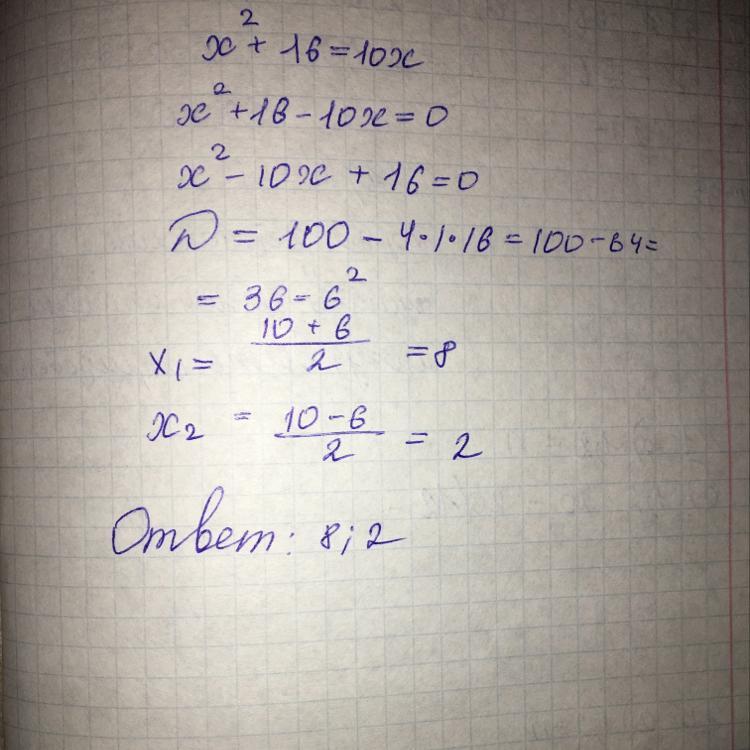 x² + 16 = 10x
x² + 16 - 10x = 0
x² - 10x + 16 = 0
D = 100 - 4·1·16 = 100 - 64 =
= 36 = 6²
x₁ = (10 + 6)/2 = 8
x₂ = (10 - 6)/2 = 2
Ответ: 8; 2